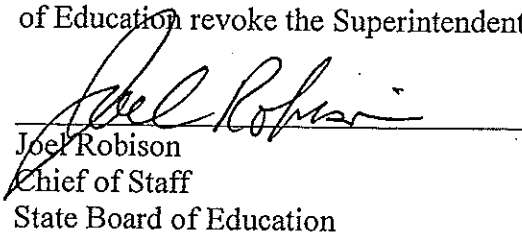 of Education revoke the Superintendent
Joel Robison
Joel Robison
Chief of Staff
State Board of Education